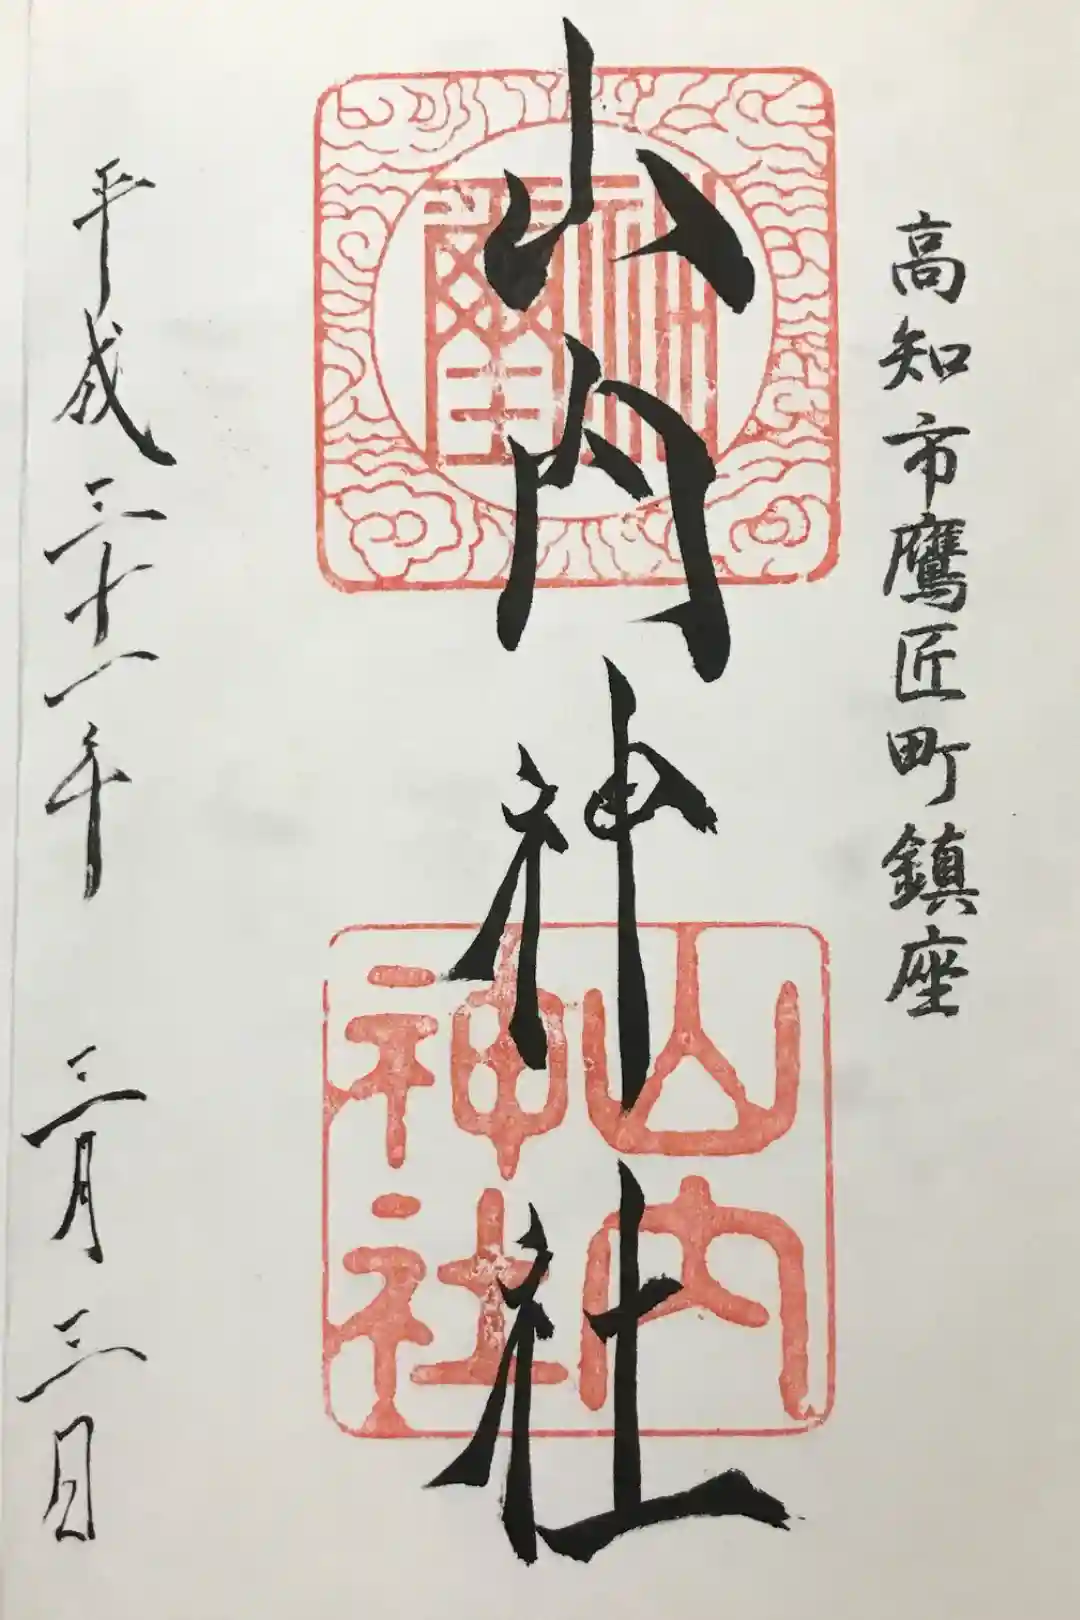 高知市鷹匠町鎮座
山内神社
神璽
山内
神社
平成三十一年 三月三日